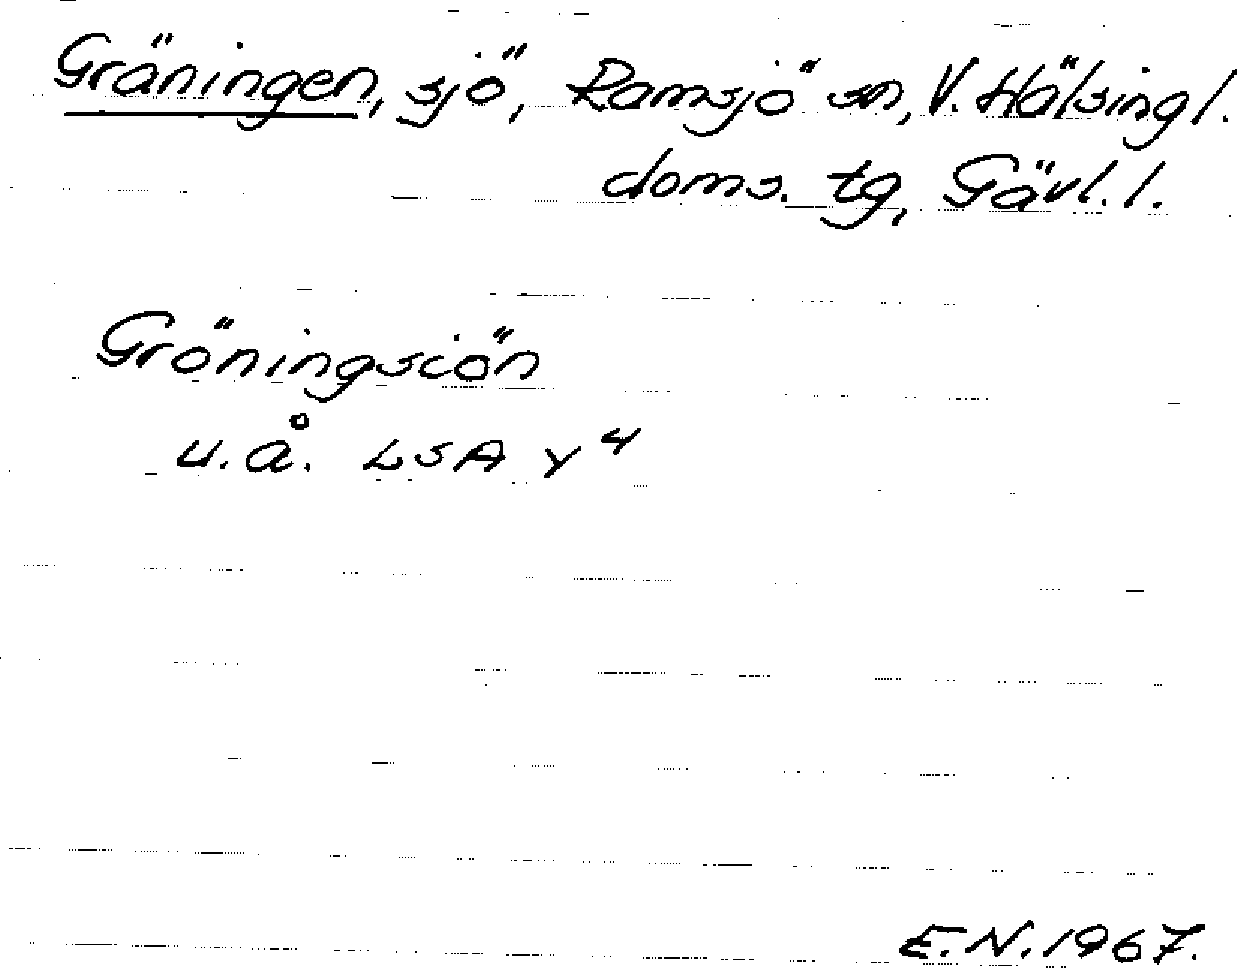 Gräningen, sjö, Ramsjö sn, V. Hälsingl.
doms. tg, Gävl. l.
Gröningsiön
u. å. LSA Y 4
E. N. 1967.